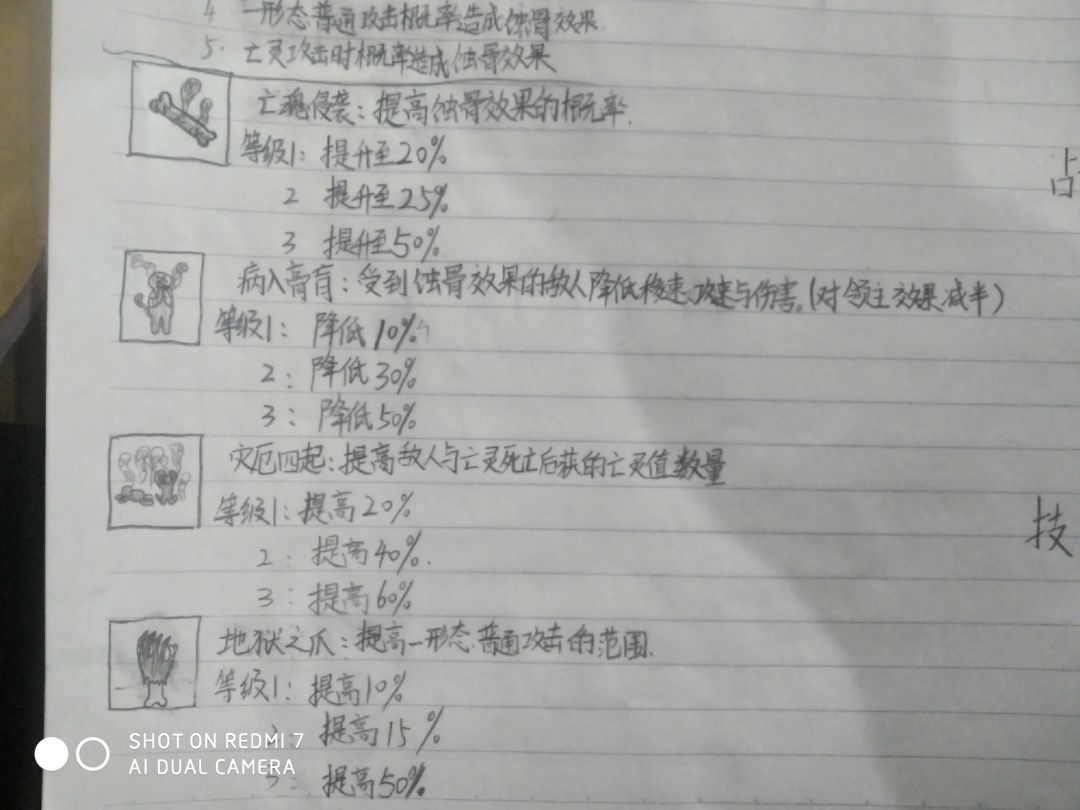 4 一形态普通攻击概率造成蚀骨效果.
5. 亡灵攻击时概率造成蚀骨效果
亡魂侵袭:提高蚀骨效果的概率.
等级1:提升至20%
2 提升至25%
3 提升至50%
病入膏肓:受到蚀骨效果的敌人降低移速、攻速与伤害。(对领主效果减半)
等级1:降低10%
2:降低30%
3:降低50%
灾厄四起:提高敌人与亡灵死亡后获的亡灵值数量
等级1:提高20%
2:提高40%.
3:提高60%
地狱之爪:提高一形态普通攻击的范围.
等级1:提高10%
提高15%
3:提高50%
占
技
SHOT ON REDMI 7
AI DUAL CAMERA